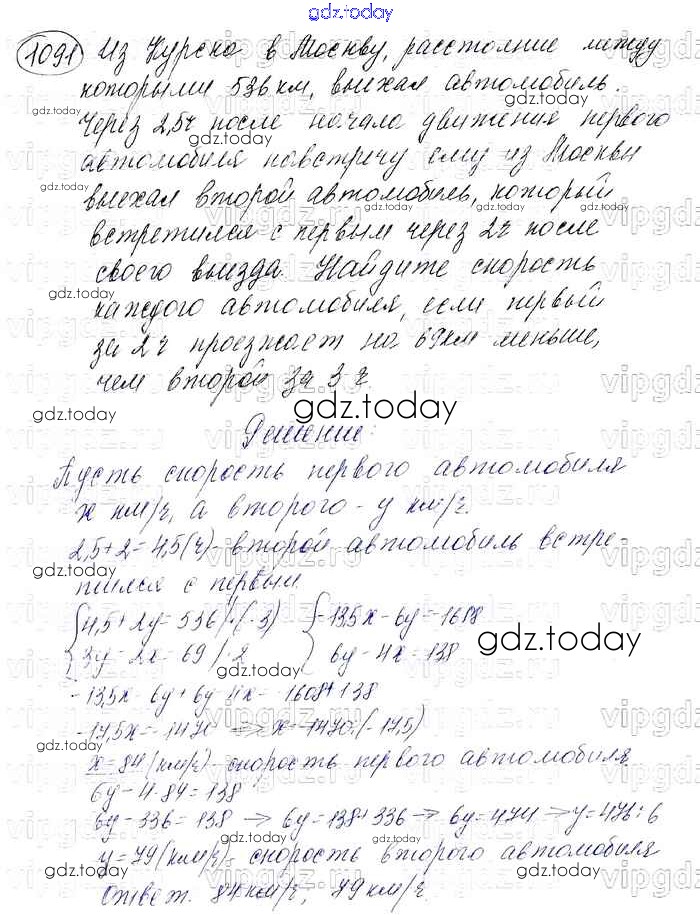 gdz.today
1091 Из Курска в Москву, расстояние между
которыми 536 км, выехал автомобиль.
Через 2,5ч после начала движения первого
автомобиля навстречу ему из Москвы
выехал второй автомобиль, который
встретился с первым через 2ч после
своего выезда. Найдите скорость
каждого автомобиля, если первый
за 2ч проезжает на 69км меньше,
чем второй за 3ч.
gdz.today
Решение:
Пусть скорость первого автомобиля
x км/ч, а второго - y км/ч.
2,5+2=4,5(ч)-второй автомобиль встре-
тился с первым.
4,5+2y=536 |·(-3) -13,5x-6y=-1608
3y-2x=69 |·2 6y-4x=138
gdz.today
-13,5x-6y+6y-4x=-1608+138
-17,5x=-1470 => x=-1470:(-17,5)
x=84(км/ч)-скорость первого автомобиля
6y-4·84=138
6y-336=138 → 6y=138+336 → 6y=474 → y=474:6
y=79(км/ч)-скорость второго автомобиля
Ответ. 84км/ч, 79км/ч.
gdz.today
vipgdz.ru